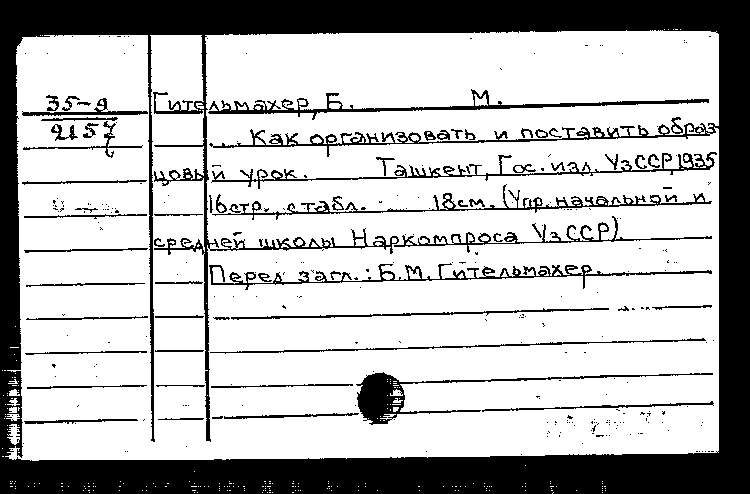 35-9
2157
Гительмахер, Б. М.
... Как организовать и поставить образ-
цовый урок. Ташкент, Гос. изд. УзССР, 1935
16стр., стабл. 18см. (Упр. начальной и
средней школы Наркомпроса УзССР).
Перед загл.: Б.М. Гительмахер.